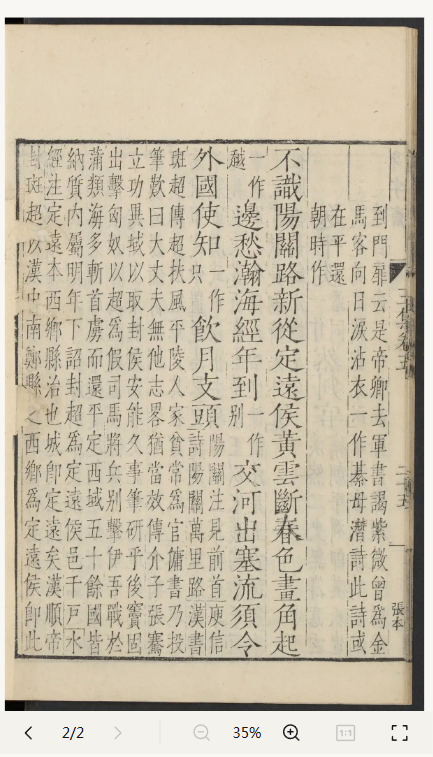 到門扉云是帝卿去軍書謁紫微曾爲金
馬客向日淚沾衣一作綦毋潛詩此詩或
在平還
朝時作
不識陽關路新從定遠侯黃雲斷春色畫角起
一作越邊愁瀚海經年到一作别交河出塞流須令
外國使知一作只飲月支頭陽關注見前首庾信詩陽關萬里路漢書
班超傳超扶風平陵人家貧常爲官傭書乃投
筆歎曰大丈夫無他志畧猶當效傅介子張騫
立功異域以取封侯安能久事筆研乎後竇固
出擊匈奴以超爲假司馬將兵别擊伊吾戰於
蒲類海多斬首虜而還平定西域五十餘國皆
納質内屬明年下詔封超爲定遠侯邑千戸水
經注定遠本西鄉縣治也城卽定遠矣漢順帝
封班超以漢中南鄭縣之西鄉爲定遠侯卽此
張本
2/2
35%
1:1